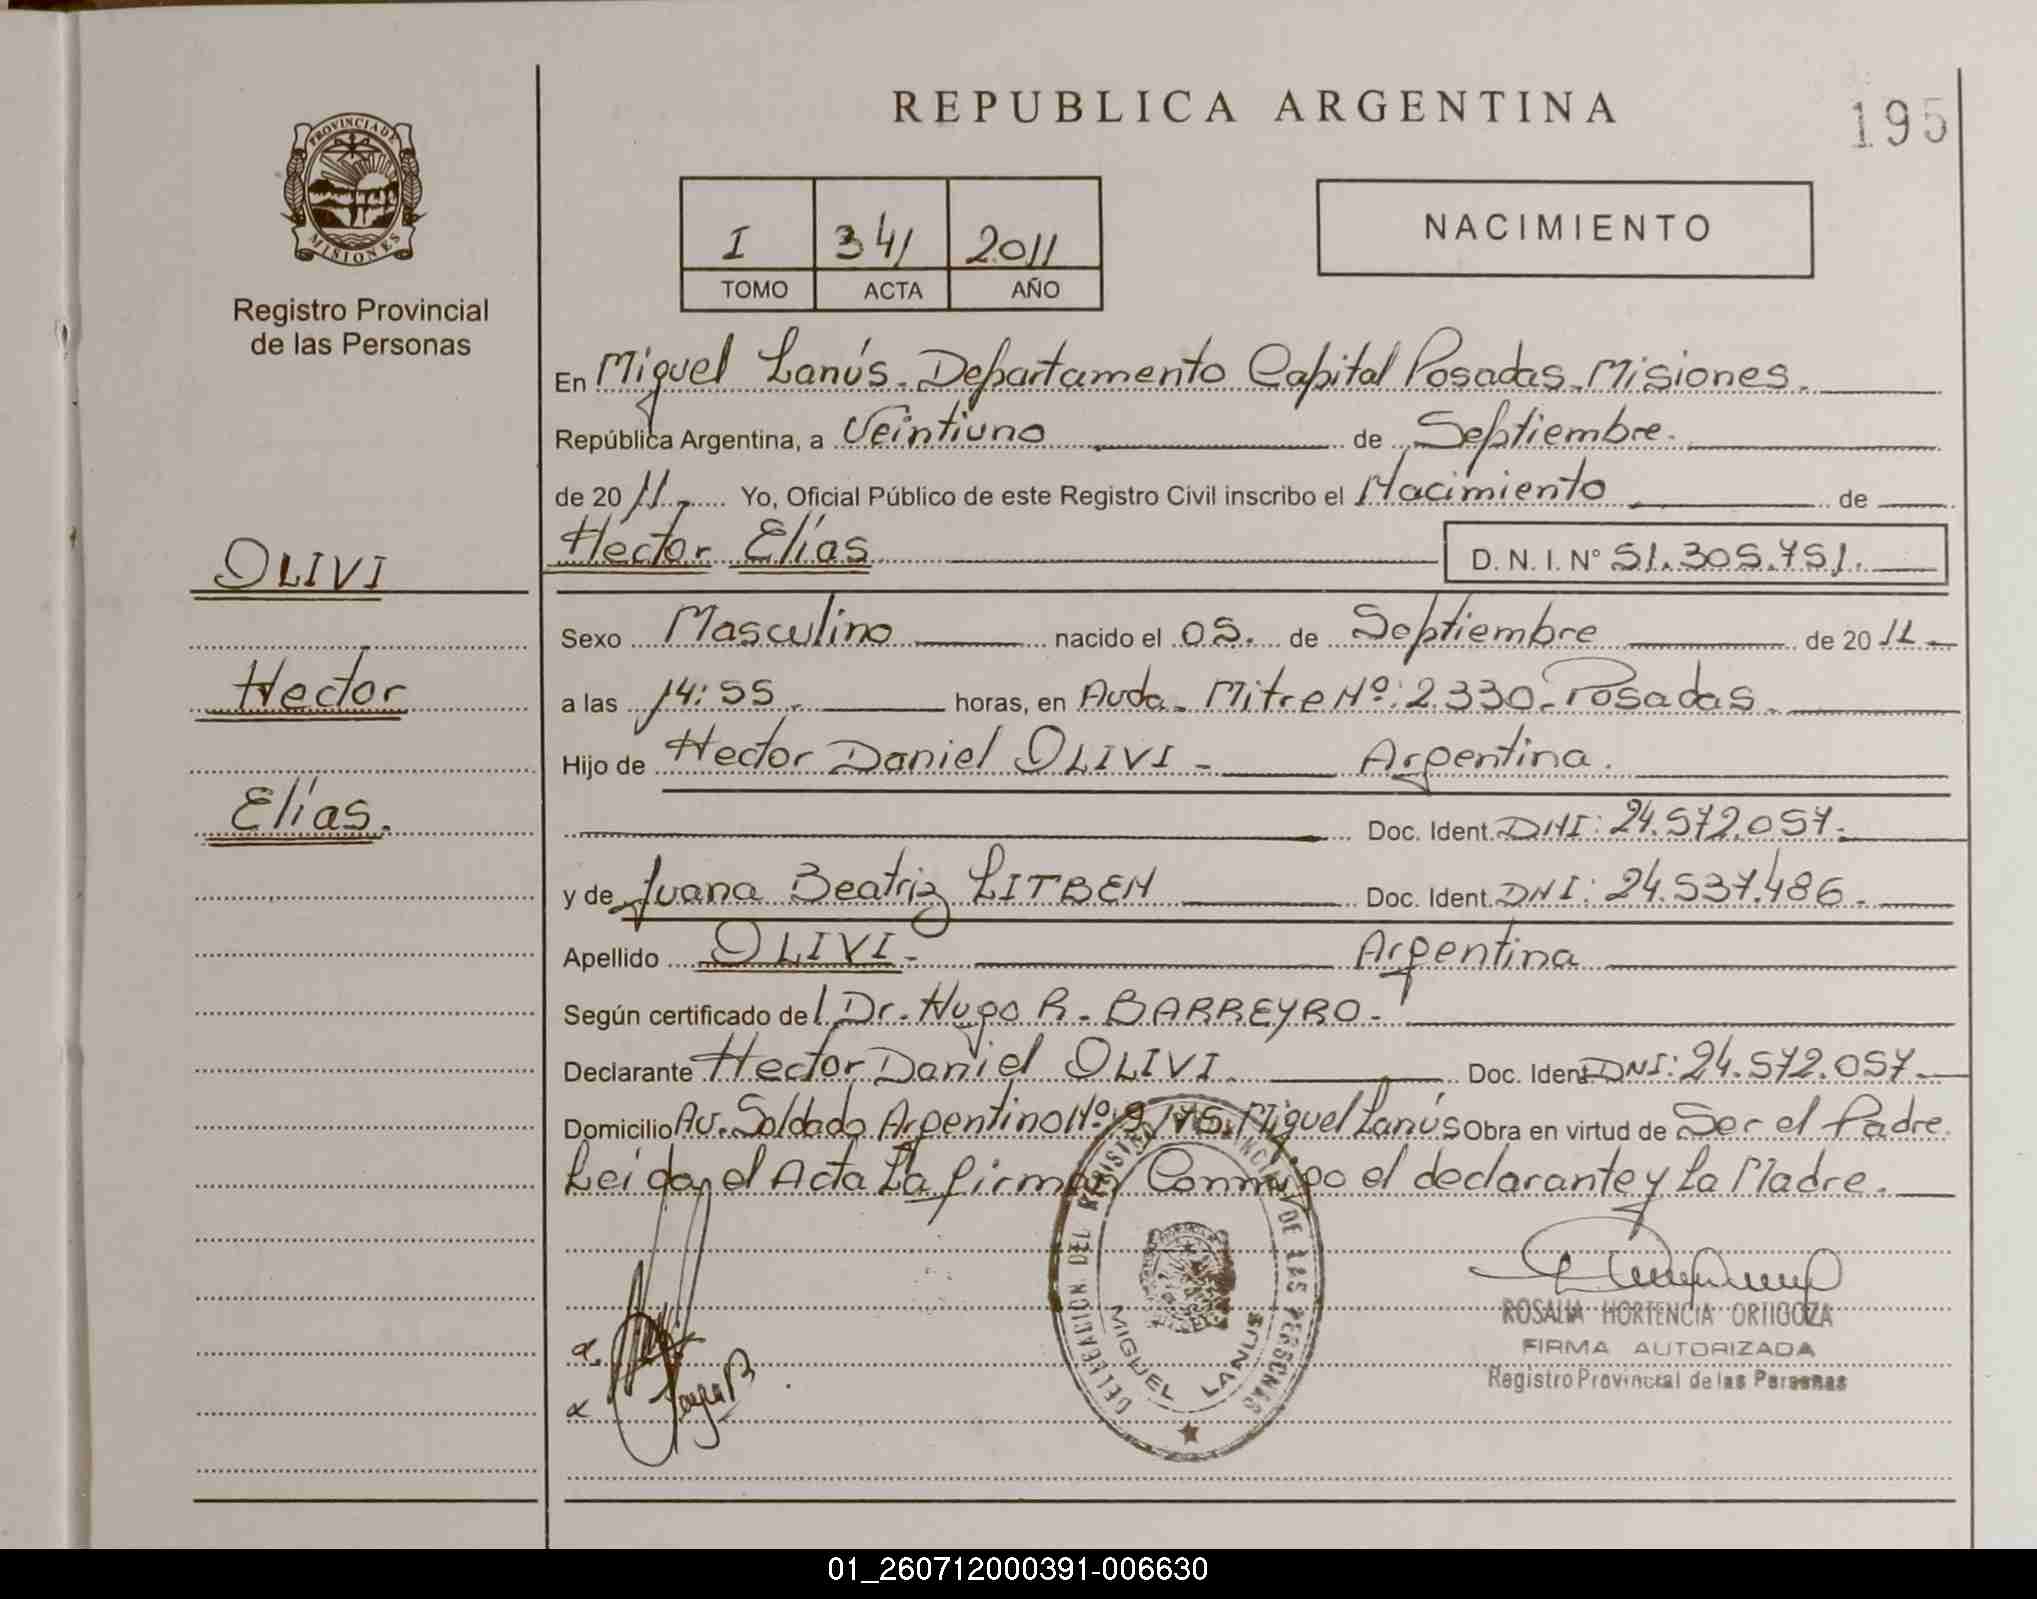 REPUBLICA ARGENTINA
195
PROVINCIA DE
MISIONES
Registro Provincial
de las Personas
I 341 2011
TOMO ACTA AÑO
NACIMIENTO
En Miguel Lanús. Departamento Capital Posadas. Misiones.
República Argentina, a Veintiuno de Septiembre.
de 2011.- Yo, Oficial Público de este Registro Civil inscribo el Nacimiento de
Hector Elías D. N. I. N° 51.305.751.
OLIVI
Hector
Elías.
Sexo Masculino nacido el 05. de Septiembre de 2011.-
a las 14:55. horas, en Avda. Mitre Nº: 2.330.- Posadas.
Hijo de Hector Daniel OLIVI - Argentina.
Doc. Ident. DNI: 24.572.057.
y de Juana Beatriz LITBEN Doc. Ident. DNI: 24.537.486.-
Apellido OLIVI.- Argentina
Según certificado del Dr. Hugo R. BARREYRO.-
Declarante Hector Daniel OLIVI. Doc. Ident DNI: 24.572.057.
Domicilio Av. Soldado Argentino Nº Miguel Lanús Obra en virtud de Ser el Padre.
Leida el Acta La firman Conmigo el declarante y La Madre.
DELEGACION DEL REGISTRO PROVINCIAL DE LAS PERSONAS
MIGUEL LANUS
ROSALIA HORTENCIA ORTIGOZA
FIRMA AUTORIZADA
Registro Provincial de las Personas
01_260712000391-006630